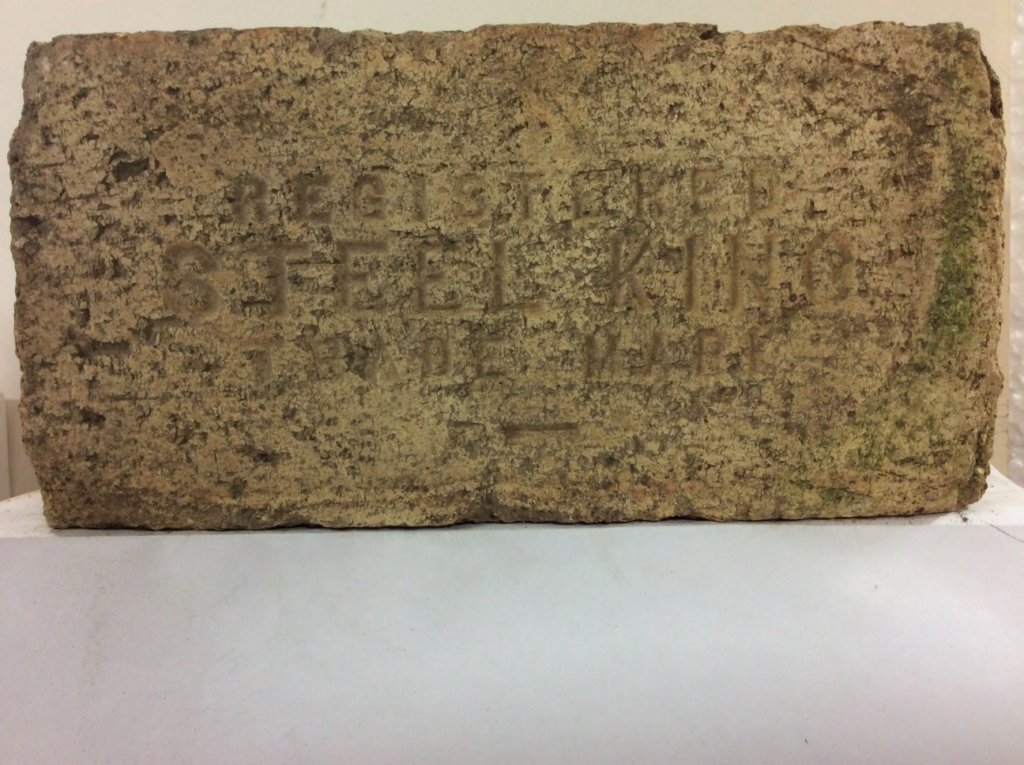 REGISTERED
STEEL KING
TRADE MARK